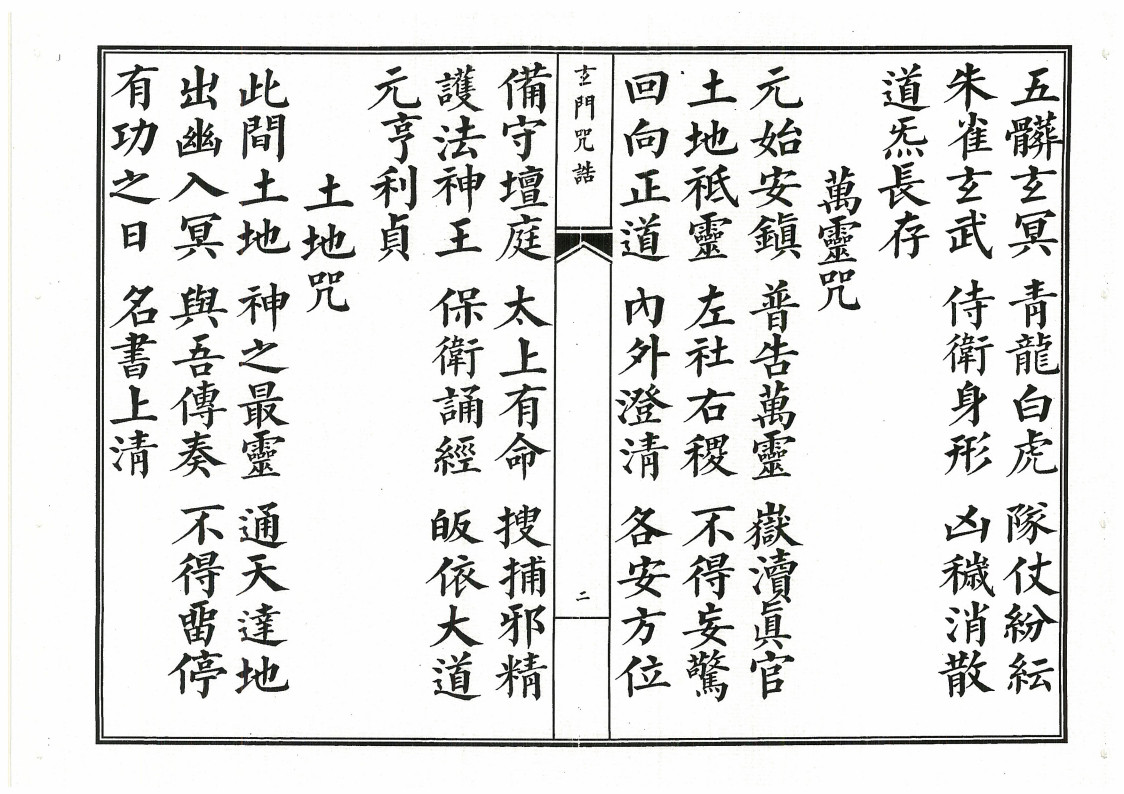 五髒玄冥 青龍白虎 隊仗紛紜
朱雀玄武 侍衛身形 凶穢消散
道炁長存
萬靈咒
元始安鎮 普告萬靈 嶽瀆眞官
土地祗靈 左社右稷 不得妄驚
回向正道 內外澄清 各安方位
玄門咒誥
二
備守壇庭 太上有命 搜捕邪精
護法神王 保衛誦經 皈依大道
元亨利貞
土地咒
此間土地 神之最靈 通天達地
出幽入冥 與吾傳奏 不得畱停
有功之日 名書上清